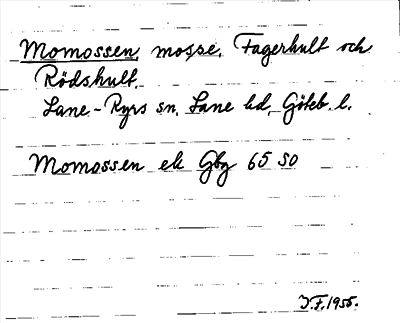 Momossen, mosse, Fagerhult och
Rödshult,
Lane-Ryrs sn, Lane hd, Göteb. l.
Momossen ek Gbg 65 SO
I.F. 1955.